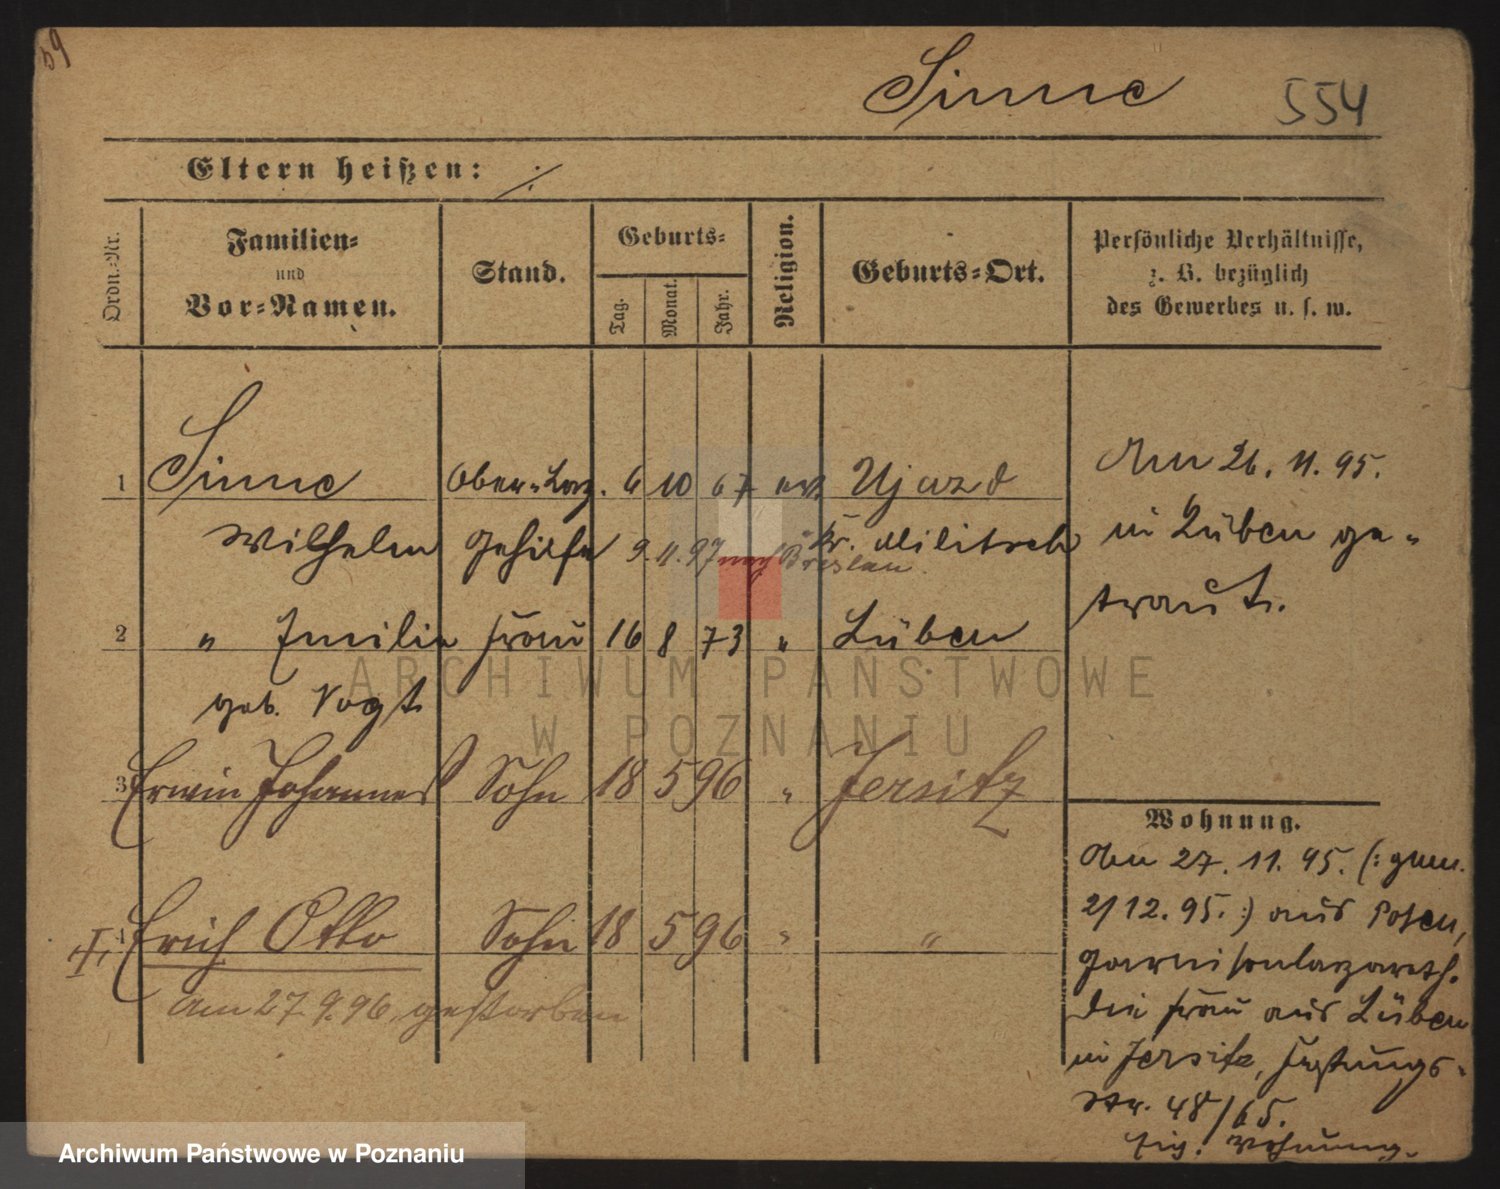 59
Sinne 554
Eltern heißen: ./.
Ordn.-Nr.
Familien-
und
Vor-Namen.
Stand.
Geburts-
Tag. Monat. Jahr.
Religion.
Geburts-Ort.
Persönliche Verhältnisse,
z. B. bezüglich
des Gewerbes u. s. w.
1 Sinne Ober-Laz. 6 10 67 ev. Ujazd
Wilhelm Gehilfe Kr. Militsch
9.11.97 nach Breslau
2 " Emilie Frau 16 8 73 " Lüben
geb. Vogt
3 Erwin Johannes Sohn 18 5 96 " Jersitz
4 Erich Otto Sohn 18 5 96 " "
am 27.9.96 gestorben
Am 26.11.95.
in Lüben ge-
traut.
Wohnung.
Am 27.11.95. (: gem.
2/12.95. :) aus Posen,
Garnisonlazareth.
Die Frau aus Lüben
in Jersitz,
Str. 48/65.
Eig. Wohnung.
ARCHIWUM PAŃSTWOWE
W POZNANIU
Archiwum Państwowe w Poznaniu